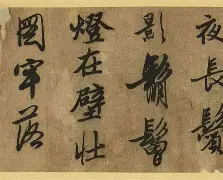 夜長鬢
影鬅鬙
燈在壁壯
圖牢落